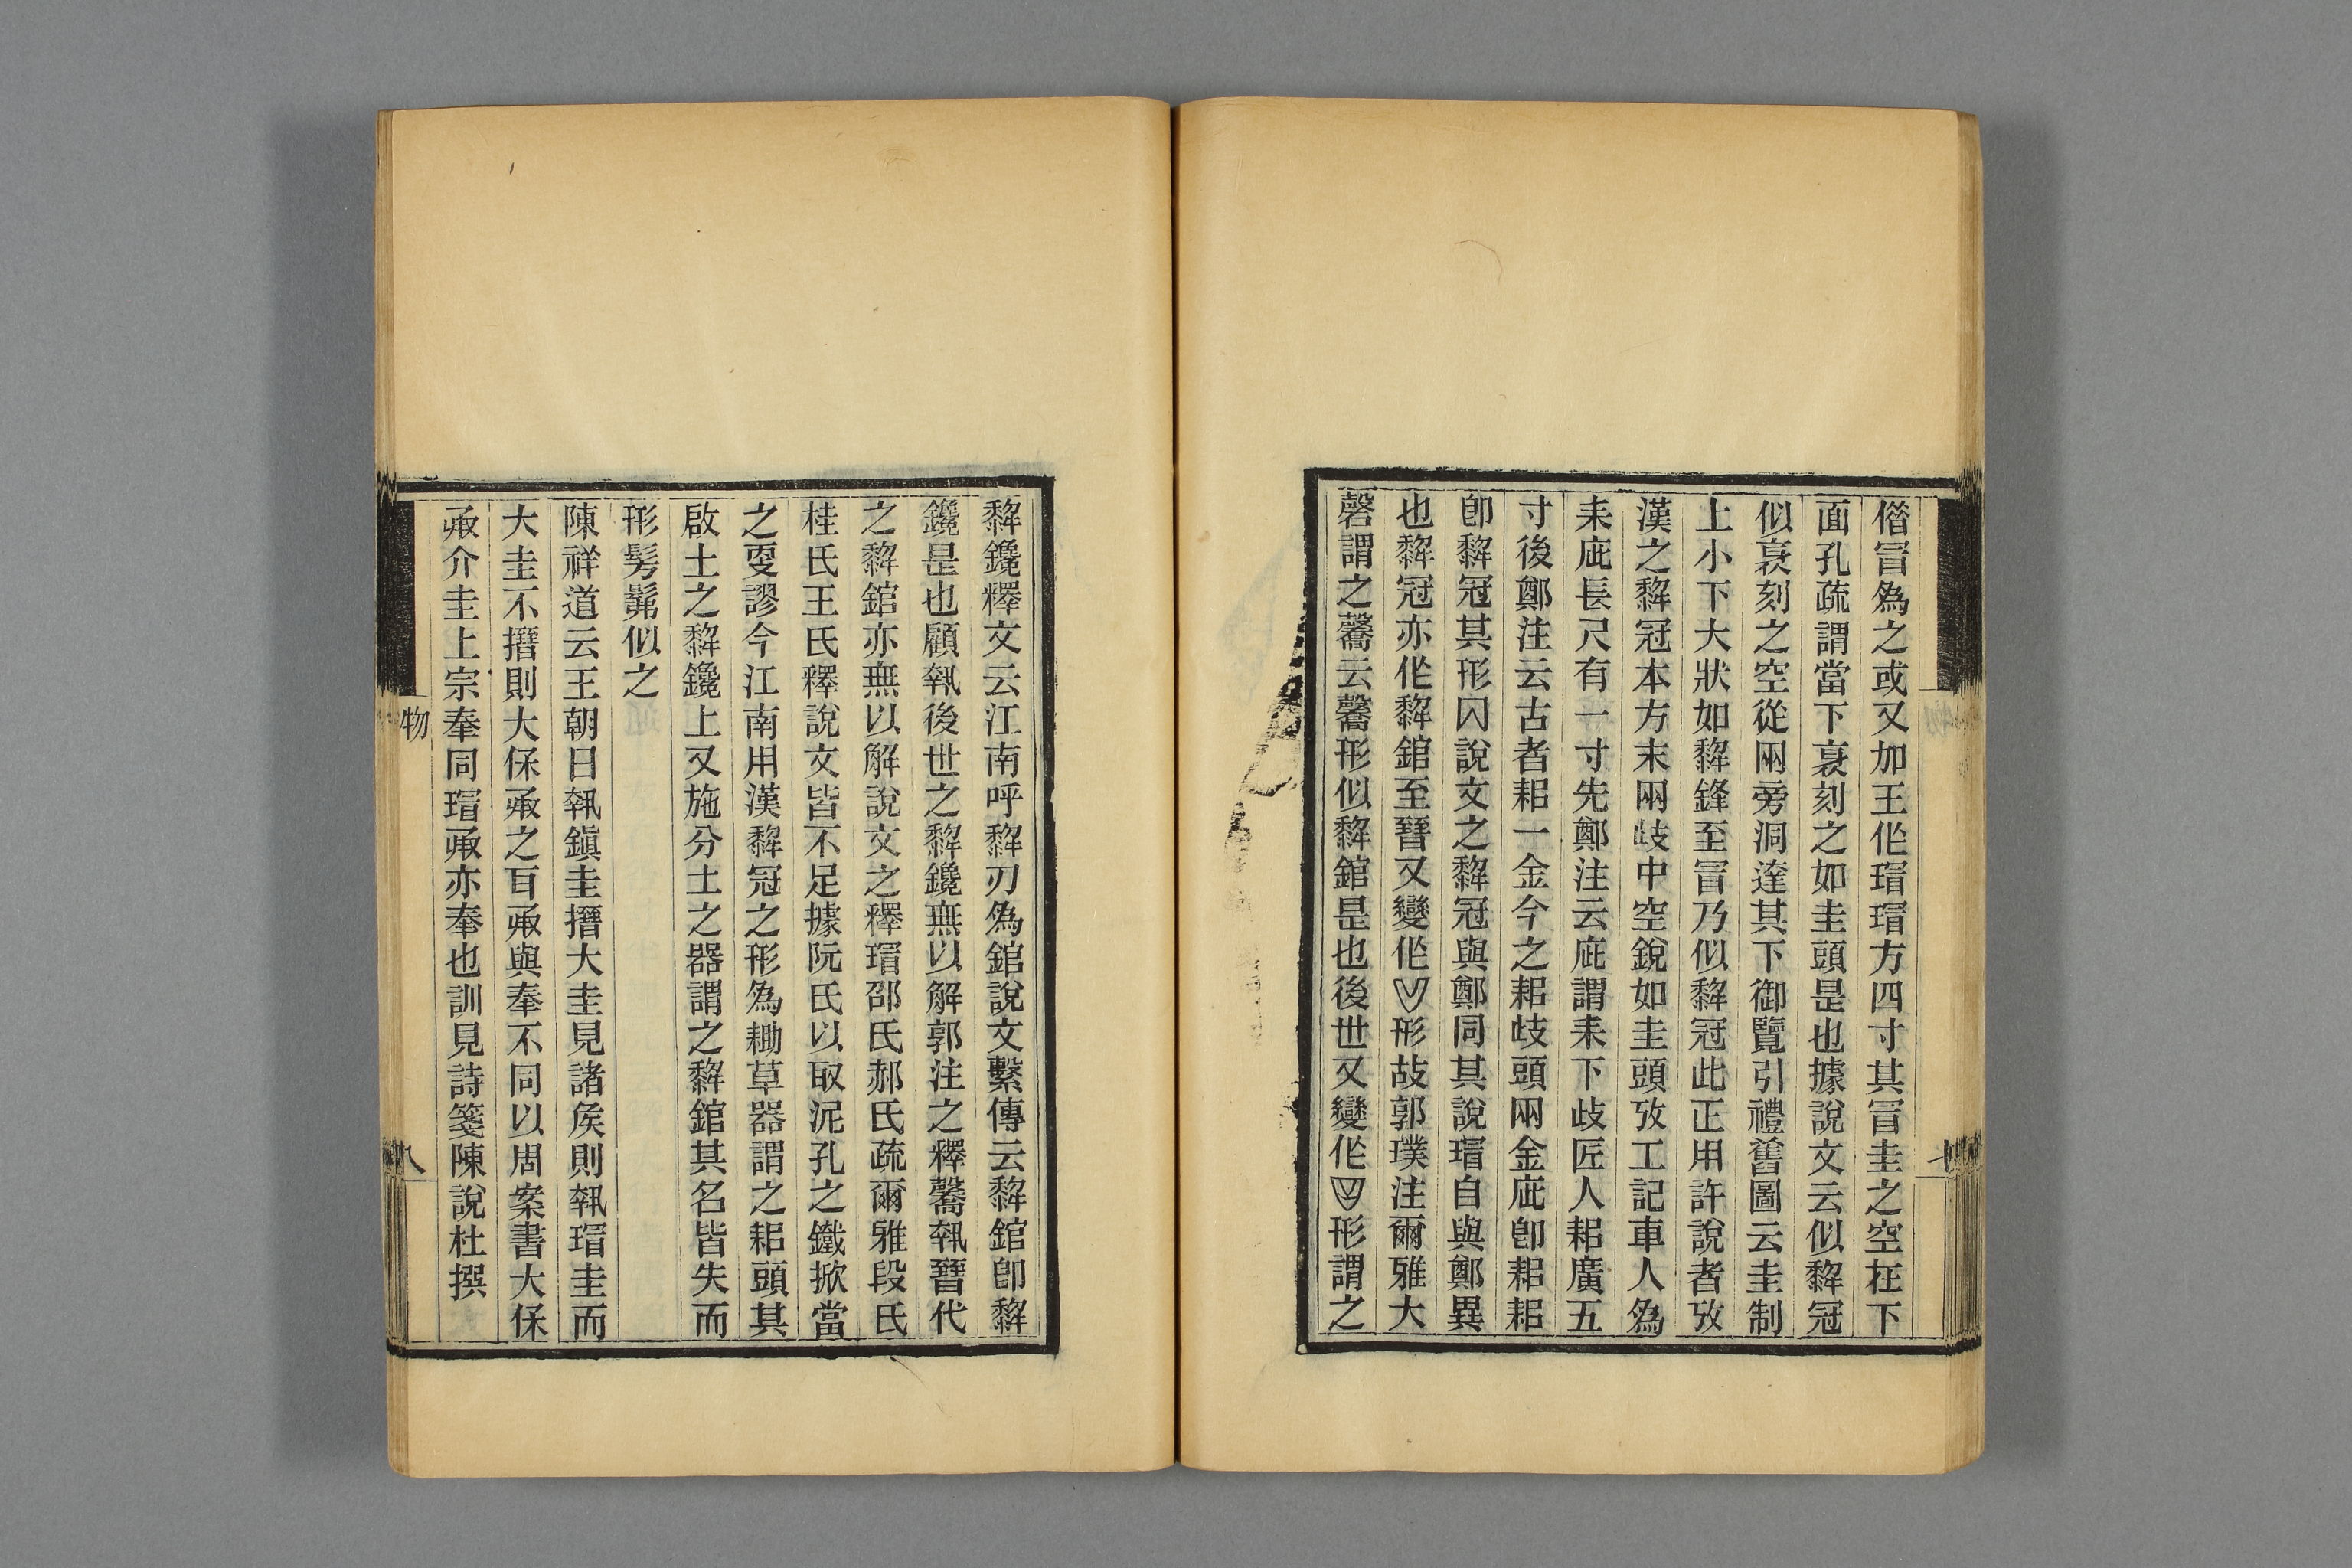 偺冒爲之或又加王作瑁瑁方四寸其冒圭之空在下
面孔疏謂當下衺刻之如圭頭是也據說文云似犂冠
似衺刻之空從兩旁洞達其下御覽引禮舊圖云圭制
上小下大狀如犂鋒至冒乃似犂冠此正用許說者攷
漢之犂冠本方末兩歧中空銳如圭頭攷工記車人爲
耒庛長尺有一寸先鄭注云庛謂耒下歧匠人耜廣五
寸後鄭注云古者耜一金今之耜歧頭兩金庛卽耜耜
卽犂冠其形㓁說文之犂冠與鄭同其說瑁自與鄭異
也犂冠亦作犂錧至晉又變作形故郭璞注爾雅大
磬謂之毊云毊形似犂錧是也後世又變作形謂之
犂鑱釋文云江南呼犂刃爲錧說文繫傳云犂錧卽犂
鑱是也顧執後世之犂鑱無以解郭注之釋毊執晉代
之犂錧亦無以解說文之釋瑁邵氏郝氏疏爾雅段氏
桂氏王氏釋說文皆不足據阮氏以取泥孔之鐵掀當
之更謬今江南用漢犂冠之形爲耡草器謂之耜頭其
啟土之犂鑱上又施分土之器謂之犂錧其名皆失而
形髣髴似之
陳祥道云王朝日執鎭圭搢大圭見諸矦則執瑁圭而
大圭不搢則大保承之百承與奉不同以周案書大保
承介圭上宗奉同瑁承亦奉也訓見詩箋陳說杜撰
物
八